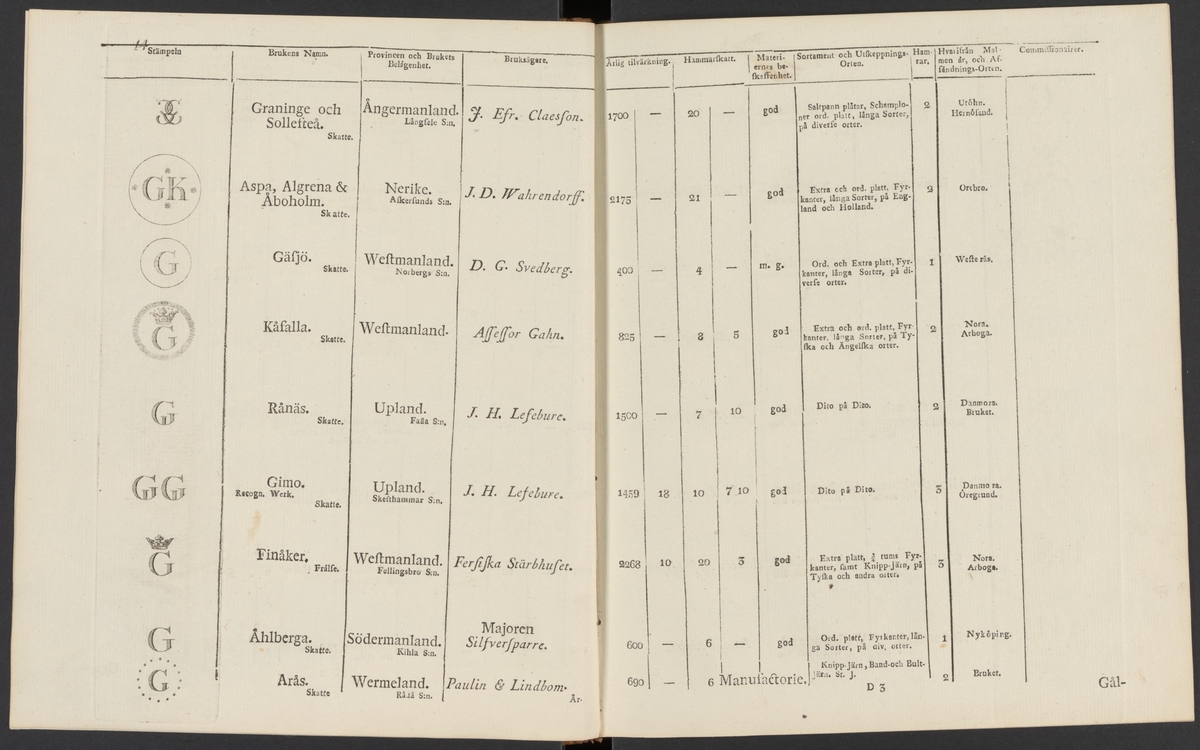 14
Stämpeln | Brukens Namn. | Provincen och Brukets Belägenhet. | Bruksägare. | Årlig tilvärkning. | Hammarſkatt. | Materiernes beſkaffenhet. | Sortament och Utſkeppnings-Orten. | Hamrar. | Hvarifrån Malmen är, och Afſändnings-Orten. | Commiſſionairer.
Graninge och Sollefteå. Skatte. | Ångermanland. Långſele S:n. | J. Efr. Claesſon. | 1700 — | 20 — | god | Saltpann plåtar, Schamploner ord. platt, långa Sorter, på diverſe orter. | 2 | Utöhn. Hernöſand.
GK | Aspa, Algrena & Åboholm. Skatte. | Nerike. Aſkerſunds S:n. | J. D. Wahrendorff. | 2175 — | 21 — | god | Extra och ord. platt, Fyrkanter, långa Sorter, på England och Holland. | 3 | Örebro.
G | Gäſjö. Skatte. | Weſtmanland. Norbergs S:n. | D. G. Svedberg. | 400 — | 4 — | m. g. | Ord. och Extra platt, Fyrkanter, långa Sorter, på diverſe orter. | 1 | Weſterås.
G | Kåfalla. Skatte. | Weſtmanland. | Aſſeſſor Gahn. | 825 — | 8 5 | god | Extra och ord. platt, Fyrkanter, långa Sorter, på Tyſka och Angelſka orter. | 2 | Nora. Arboga.
G | Rånäs. Skatte. | Upland. Faſta S:n. | J. H. Lefebure. | 1500 — | 7 10 | god | Dito på Dito. | 2 | Danmora. Bruket.
GG | Gimo. Recogn. Werk. Skatte. | Upland. Skefthammar S:n. | J. H. Lefebure. | 1459 18 | 10 7 10 | god | Dito på Dito. | 3 | Danmora. Öregrund.
G | Finåker. Frälſe. | Weſtmanland. Fellingsbro S:n. | Ferſtſka Stärbhuſet. | 2268 10 | 20 3 | god | Extra platt, tums Fyrkanter, ſamt Knipp-Järn, på Tyſka och andra orter. | 3 | Nora. Arboga.
G | Åhlberga. Skatte. | Södermanland. Kihla S:n. | Majoren Silfverſparre. | 600 — | 6 — | god | Ord. platt, Fyrkanter, långa Sorter, på div. orter. | 1 | Nyköping.
G | Arås. Skatte | Wermeland. Råda S:n. | Paulin & Lindbom. | 690 — | 6 Manufactorie. | Knipp-Järn, Band-och Bult-Järn. St. J. | 2 | Bruket.
År-
D 3
Gål-